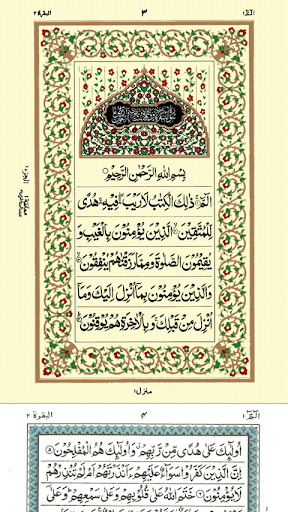 الٓمّٓ ١ ٣ البقرة ٢
بِسْمِ اللهِ الرَّحْمٰنِ الرَّحِيْمِ
الٓمّٓ ذٰلِكَ الْكِتٰبُ لَا رَيْبَ فِيْهِ هُدًى
لِّلْمُتَّقِيْنَ الَّذِيْنَ يُؤْمِنُوْنَ بِالْغَيْبِ وَ
يُقِيْمُوْنَ الصَّلٰوةَ وَمِمَّا رَزَقْنٰهُمْ يُنْفِقُوْنَ
وَالَّذِيْنَ يُؤْمِنُوْنَ بِمَآ اُنْزِلَ اِلَيْكَ وَمَآ
اُنْزِلَ مِنْ قَبْلِكَ وَبِالْاٰخِرَةِ هُمْ يُوْقِنُوْنَ
منزل ١
الٓمّٓ ١ ٤ البقرة ٢
اُولٰٓئِكَ عَلٰى هُدًى مِّنْ رَّبِّهِمْ وَاُولٰٓئِكَ هُمُ الْمُفْلِحُوْنَ ٥
اِنَّ الَّذِيْنَ كَفَرُوْا سَوَآءٌ عَلَيْهِمْ ءَاَنْذَرْتَهُمْ اَمْ لَمْ تُنْذِرْهُمْ
لَا يُؤْمِنُوْنَ ٦ خَتَمَ اللهُ عَلٰى قُلُوْبِهِمْ وَعَلٰى سَمْعِهِمْ وَعَلٰٓى